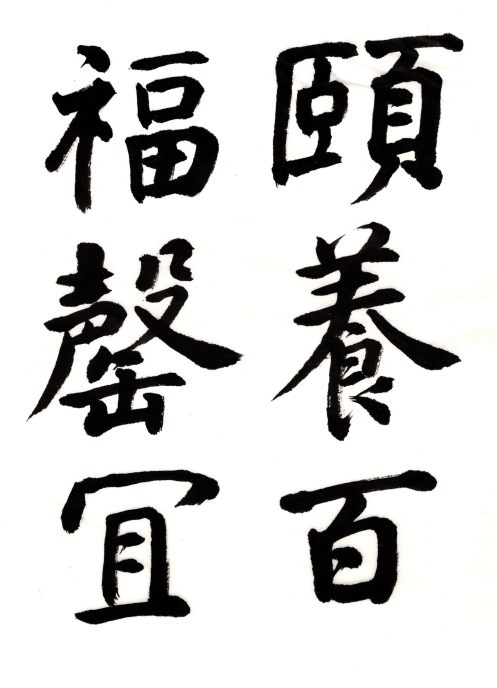 頤養百
福罄冝